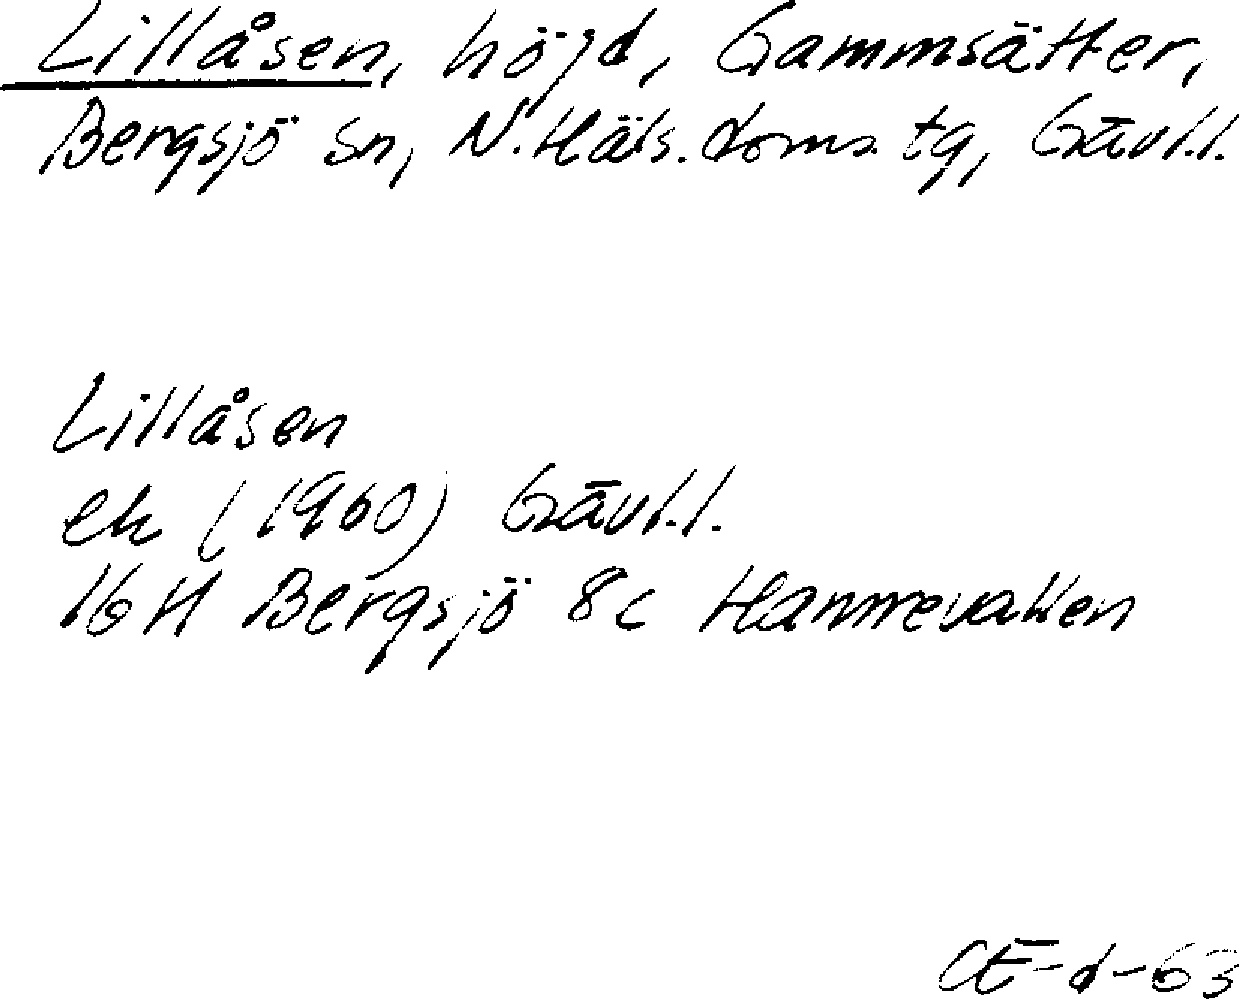 Lillåsen, höjd, Gammsätter,
Bergsjö sn, N. Häls. doms. tg, Gävl.l.
Lillåsen
ek (1960) Gävl.l.
16 H Bergsjö 8c Hammrevallen
CE-d-63